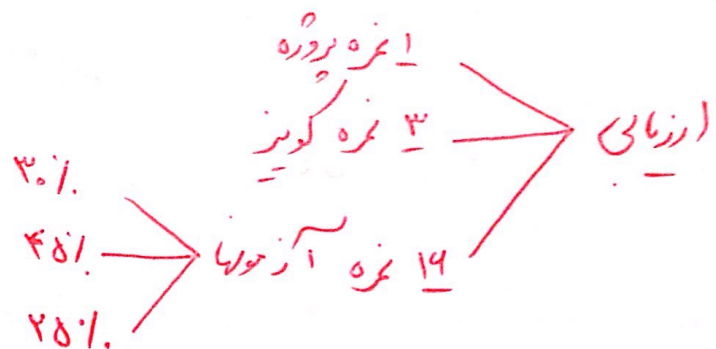 ارزیابی
۱ نمره پروژه
۳ نمره کویز
۱۶ نمره آزمونها
۳۰٪
۴۵٪
۲۵٪